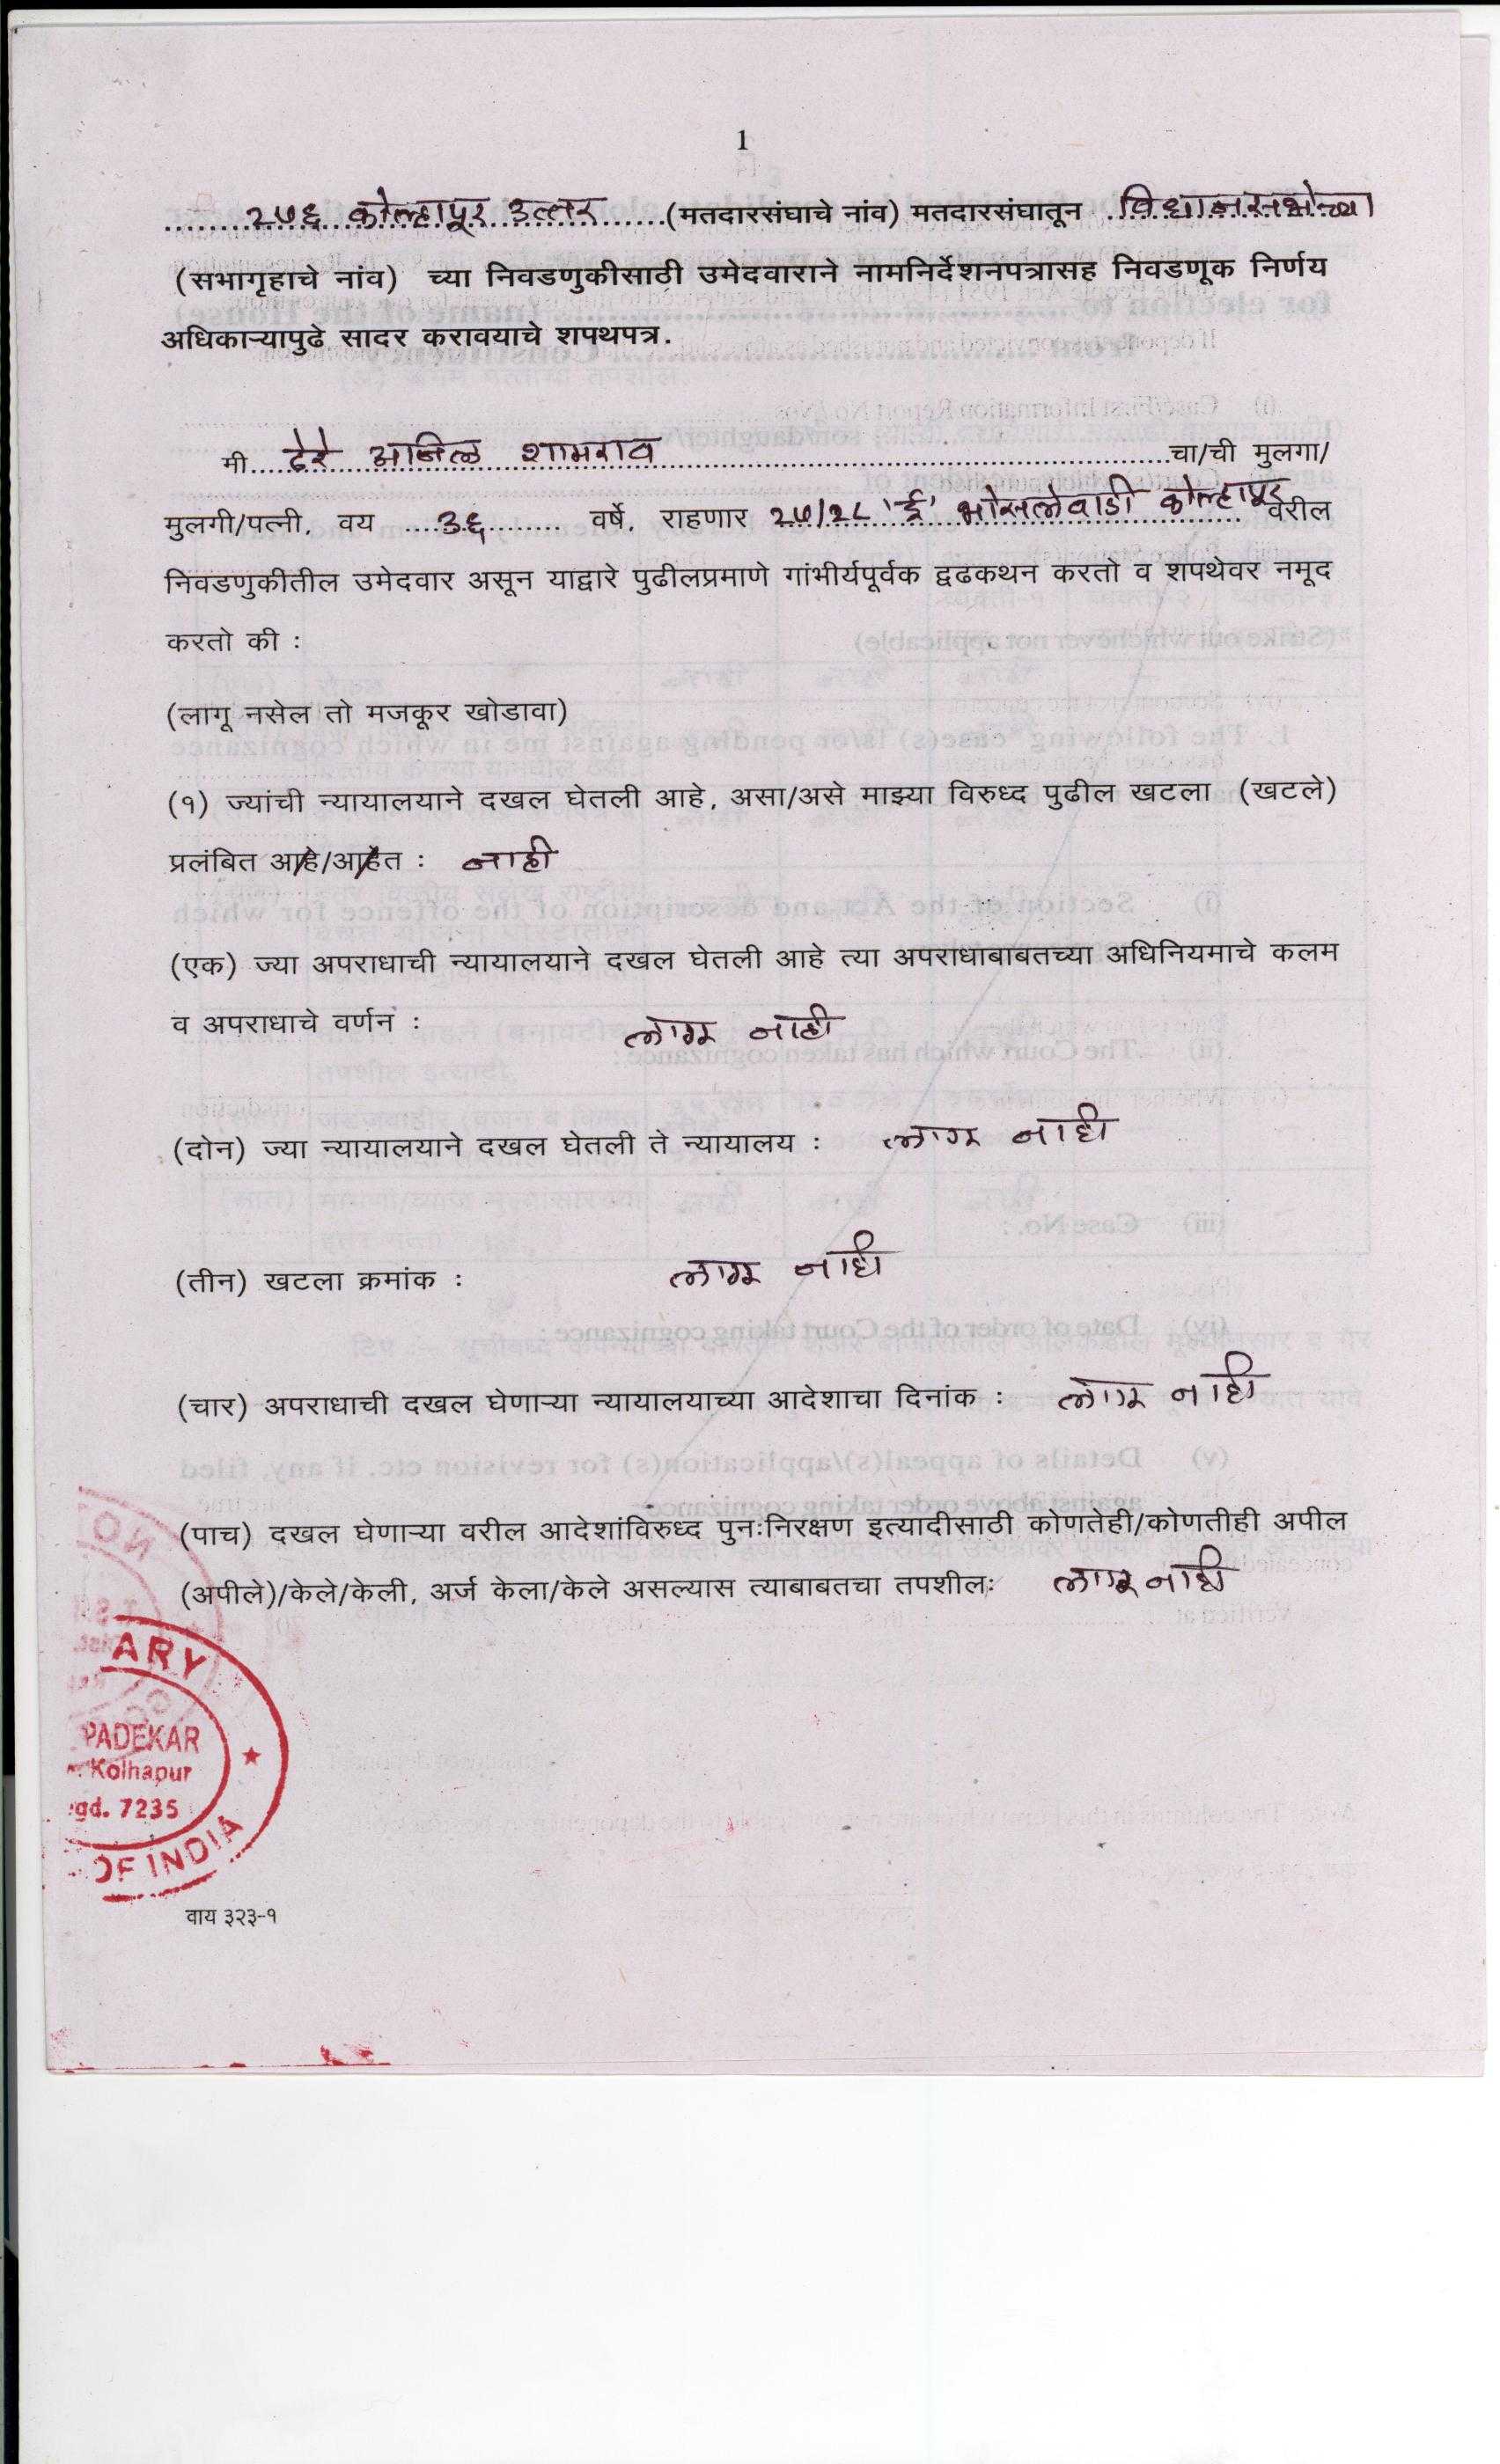 1
२७६ कोल्हापूर उत्तर (मतदारसंघाचे नांव) मतदारसंघातून विधानसभेच्या
(सभागृहाचे नांव) च्या निवडणुकीसाठी उमेदवाराने नामनिर्देशनपत्रासह निवडणूक निर्णय
अधिकाऱ्यापुढे सादर करावयाचे शपथपत्र.
मी.... ढेरे अनिल शामराव ....चा/ची मुलगा/
मुलगी/पत्नी, वय ....३६........ वर्षे, राहणार २७/२८ 'ई' भोसलेवाडी कोल्हापूर वरील
निवडणुकीतील उमेदवार असून याद्वारे पुढीलप्रमाणे गांभीर्यपूर्वक द्वढकथन करतो व शपथेवर नमूद
करतो की :
(लागू नसेल तो मजकूर खोडावा)
(१) ज्यांची न्यायालयाने दखल घेतली आहे, असा/असे माझ्या विरुध्द पुढील खटला (खटले)
प्रलंबित आहे/आहेत : नाही
(एक) ज्या अपराधाची न्यायालयाने दखल घेतली आहे त्या अपराधाबाबतच्या अधिनियमाचे कलम
व अपराधाचे वर्णन : लागू नाही
(दोन) ज्या न्यायालयाने दखल घेतली ते न्यायालय : लागू नाही
(तीन) खटला क्रमांक : लागू नाही
(चार) अपराधाची दखल घेणाऱ्या न्यायालयाच्या आदेशाचा दिनांक : लागू नाही
(पाच) दखल घेणाऱ्या वरील आदेशांविरुध्द पुनःनिरक्षण इत्यादीसाठी कोणतेही/कोणतीही अपील
(अपीले)/केले/केली, अर्ज केला/केले असल्यास त्याबाबतचा तपशीलः लागू नाही
ARY
PADEKAR
Kolhapur
gd. 7235
OF INDIA
वाय ३२३-१